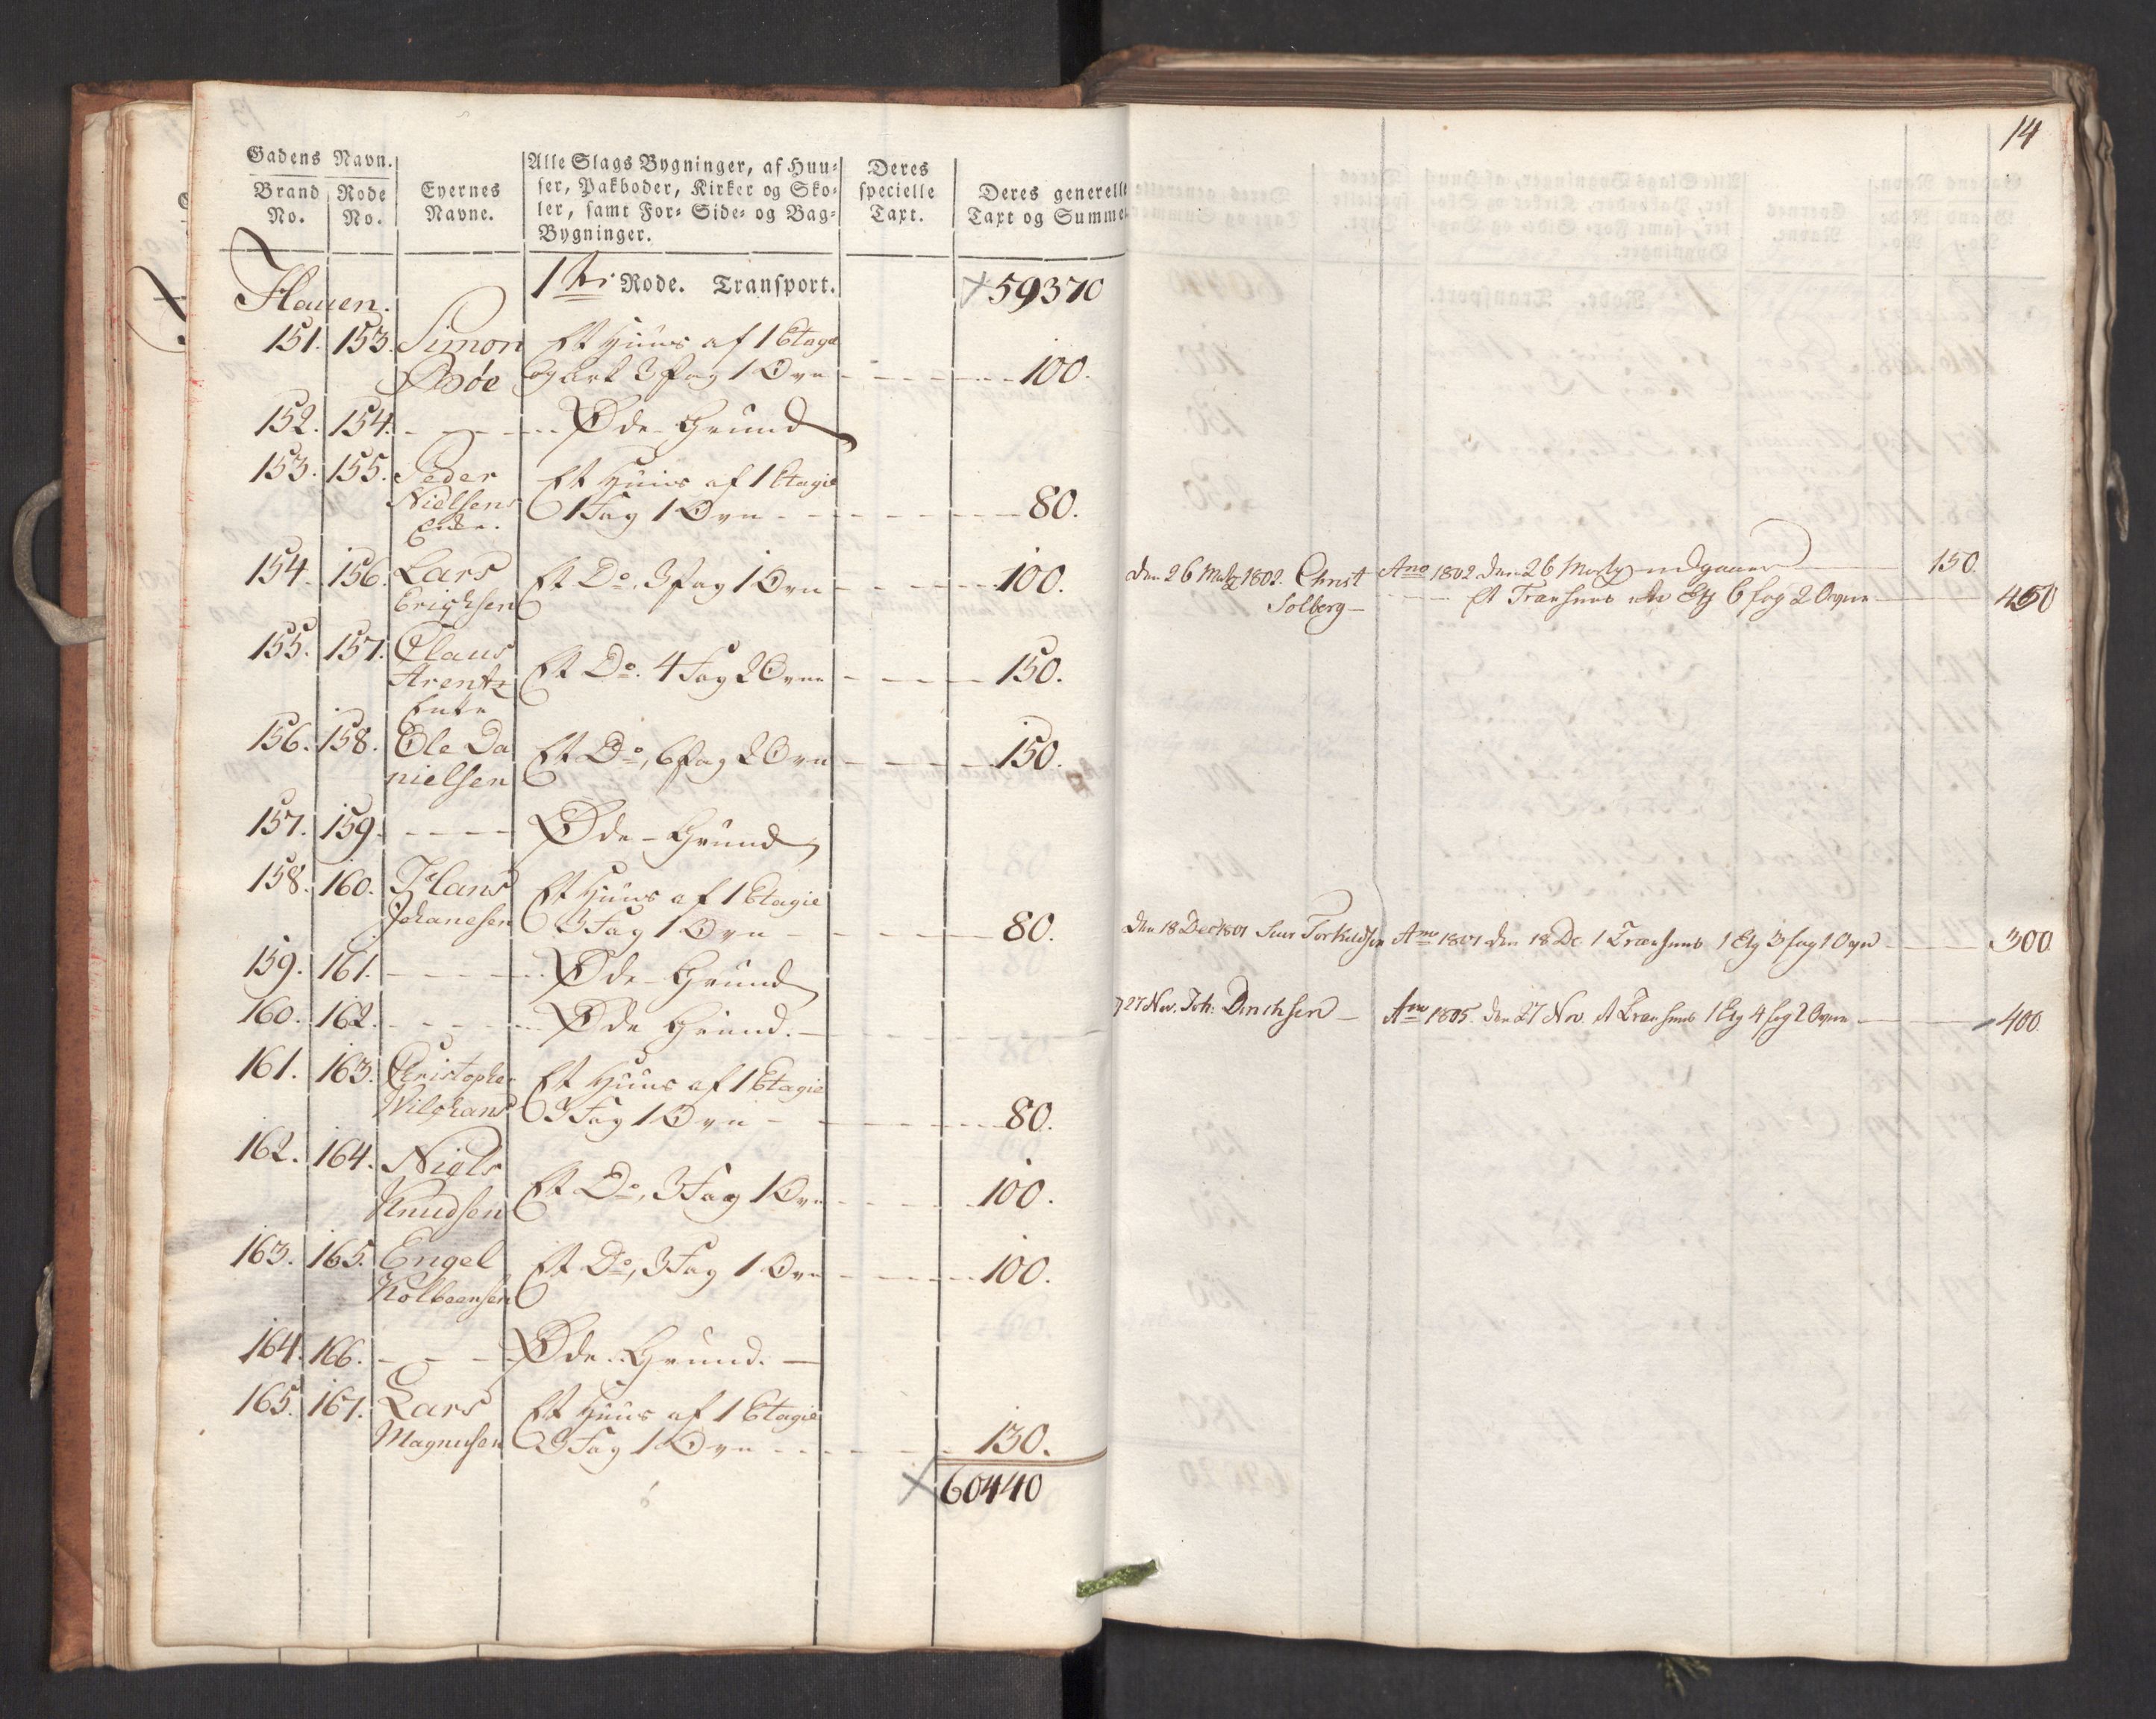 14
Gadens Navn.
Brand No. Rode No. Eyernes Navne. Alle Slags Bygninger, af Huu=
ser, Pakboder, Kirker og Sko=
ler, samt For= Side= og Bag=
Bygninger. Deres specielle Taxt. Deres generelle
Taxt og Summe
Hauen. 1ste Rode. Transport. 59370
151. 153. Simon Et Huus af 1 Etage
Bøe og Ark 3 fag 1 Ovn - - - 100.
152. 154. - - - Øde Grund
153. 155. Peder Et Huus af 1 Etagie
Nielsens 1 Fag 1 Ovn - - - 80.
Enke.
154. 156. Lars Et Do. 3 fag 1 Ovn - - - 100.
Erichsen
155. 157. Claus Et Do. 4 Fag 2 Ovne - - - 150.
Arentz
Enke
156. 158. Ole Da Et Do, 6 fag 2 Ovn - - - 150.
nielsen
157. 159. - - - Øde Grund
158. 160. Hans Et Huus af 1 Etagie
Johanesen 3 Fag 1 Ovn - - - 80.
159. 161. - - - Øde Grund
160. 162. - - - Øde Grund.
161. 163. Christopher Et Huus af 1 Etagie
Wilchans 3 Fag 1 Ovn - - - 80.
162. 164. Niels
Knudsen Et Do, 3 Fag 1 Ovn - - - 100.
163. 165. Engel Et Do, 3 Fag 1 Ovn - - - 100.
Kolbeensen
164. 166. - - - Øde Grund.
165. 167. Lars Et Huus af 1 Etagie
Magnusen 3 Fag 1 Ovn - - - 130.
60440
den 26 Martz 1802. Christ Ano 1802 den 26 Martz udgaaer 150.
Solberg - Et Træhuus 6 fag 2 Ovne 450
den 18 Dec 1801 Siur Torkildsen Ano 1801 den 18 Dec. 1 Træehuus 1 Etg 3 fag 1 Ovn 300
27 Nov. Joh: Dirichsen - Ano 1805 den 27 Nov. et Træehuus 1 Etg 4 fag 2 Ovne 400